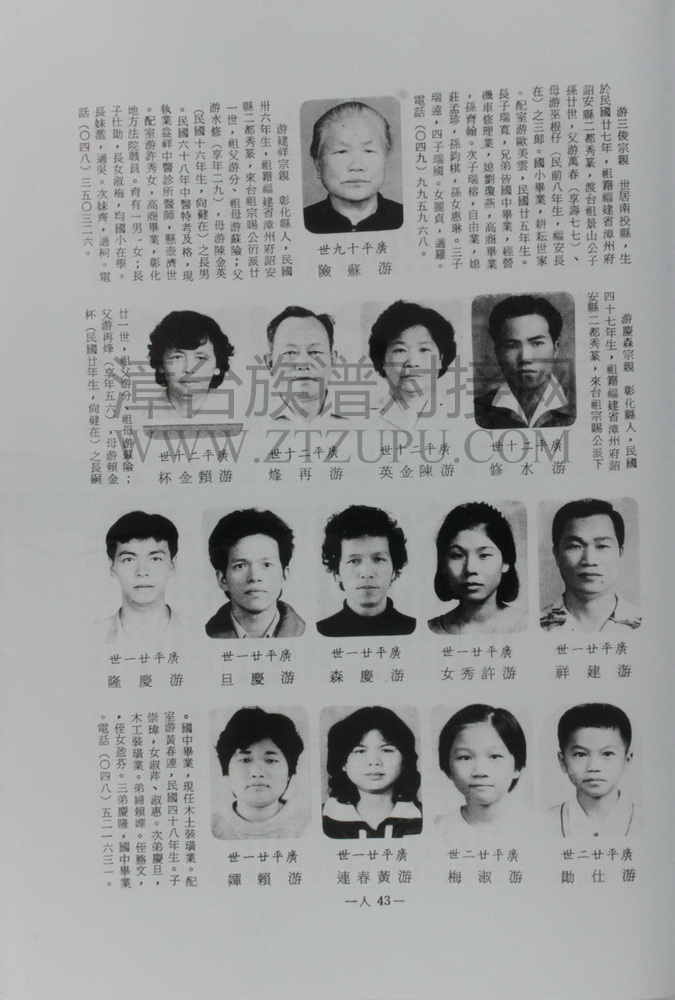 游三俊宗親　世居南投縣，生
於民國廿七年，祖籍福建省漳州府
詔安縣二都秀篆，渡台祖景山公子
孫廿世，父游萬春（享壽七七）、
母游巫根仔（民前八年生，福安長
在）之三郎。國小畢業，耕耘世家
。配室游歐美雲，民國廿五年生。
長子瑞寬，兄弟皆國中畢業，經營
機車修理業，媳劉瓊燕，高商畢業
，孫育翰。次子瑞榕，自由業，媳
莊孟珍，孫鈞棋，孫女惠琳。三子
瑞遠，四子瑞國。女麗貞，適羅。
電話（○四九）九九五九六八。
游建祥宗親　彰化縣人，民國
卅六年生，祖籍福建省漳州府詔安
縣二都秀篆，來台祖宗賜公衍派廿
一世，祖父游分、祖母游蘇險；父
游水修（享年二九），母游陳金英
（民國十六年生，尙健在）之長男
。民國六十八年中醫特考及格，現
執業益祥中醫診所醫師，懸壺濟世
。配室游許秀女，高商畢業，彰化
地方法院職員。育有一男一女；長
子仕勛，長女淑梅，均國小在學。
長妹濫，適吳。次妹齊，適柯。電
話（○四八）三五○三二六。
世九十平廣
險蘇游
游慶森宗親　彰化縣人，民國
四十七年生，祖籍福建省漳州府詔
安縣二都秀篆，來台祖宗賜公派下
廿一世，祖父游分、祖母游蘇險；
父游再烽（享年五六），母游賴金
杯（民國廿年生，尙健在）之長嗣
世十二平廣
修水游
世十二平廣
英金陳游
世十二平廣
烽再游
世十二平廣
杯金賴游
世一廿平廣
祥建游
世一廿平廣
女秀許游
世一廿平廣
森慶游
世一廿平廣
旦慶游
世一廿平廣
隆慶游
。國中畢業，現任木土裝璜業。配
室游黃春連，民國四十八年生。子
崇瑋，女淑萍、淑惠。次弟慶旦，
木工裝璜業。弟婦賴嬋。侄勝文，
，侄女盈芬。三弟慶隆，國中畢業
。電話（○四八）五二一六三一。
世二廿平廣
勛仕游
世二廿平廣
梅淑游
世一廿平廣
連春黃游
世一廿平廣
嬋賴游
一人 43—
漳台族谱对接网
WWW.ZTZUPU.COM